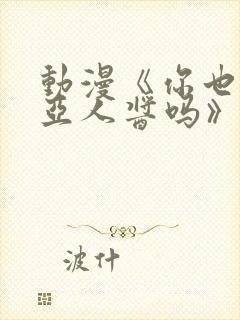 動漫《你也
亞人醬吗》
波什